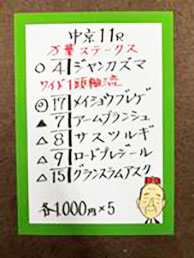 中京11R
万葉ステークス
○4ジャンカズマ
ワイド1頭軸流
◎17メイショウブレゲ
▲7アームブランシュ
△8サスツルギ
△9ロードプレデール
△15グランスラムアスク
各1,000円×5